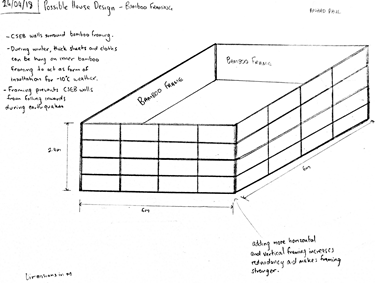 24/04/18
Possible House Design - Bamboo Framing
- CSEB walls around bamboo framing.
- During winter, thick sheets and cloths
can be hung on inner bamboo
framing to act as form of
insullation for -10°C weather.
- Framing prevents CSEB walls
from falling inwards
during earthquakes
Bamboo Framing
Bamboo Framing
6m
6m
adding more horizontal
and vertical framing increases
redundancy and makes framing
stronger.
Dimensions in m